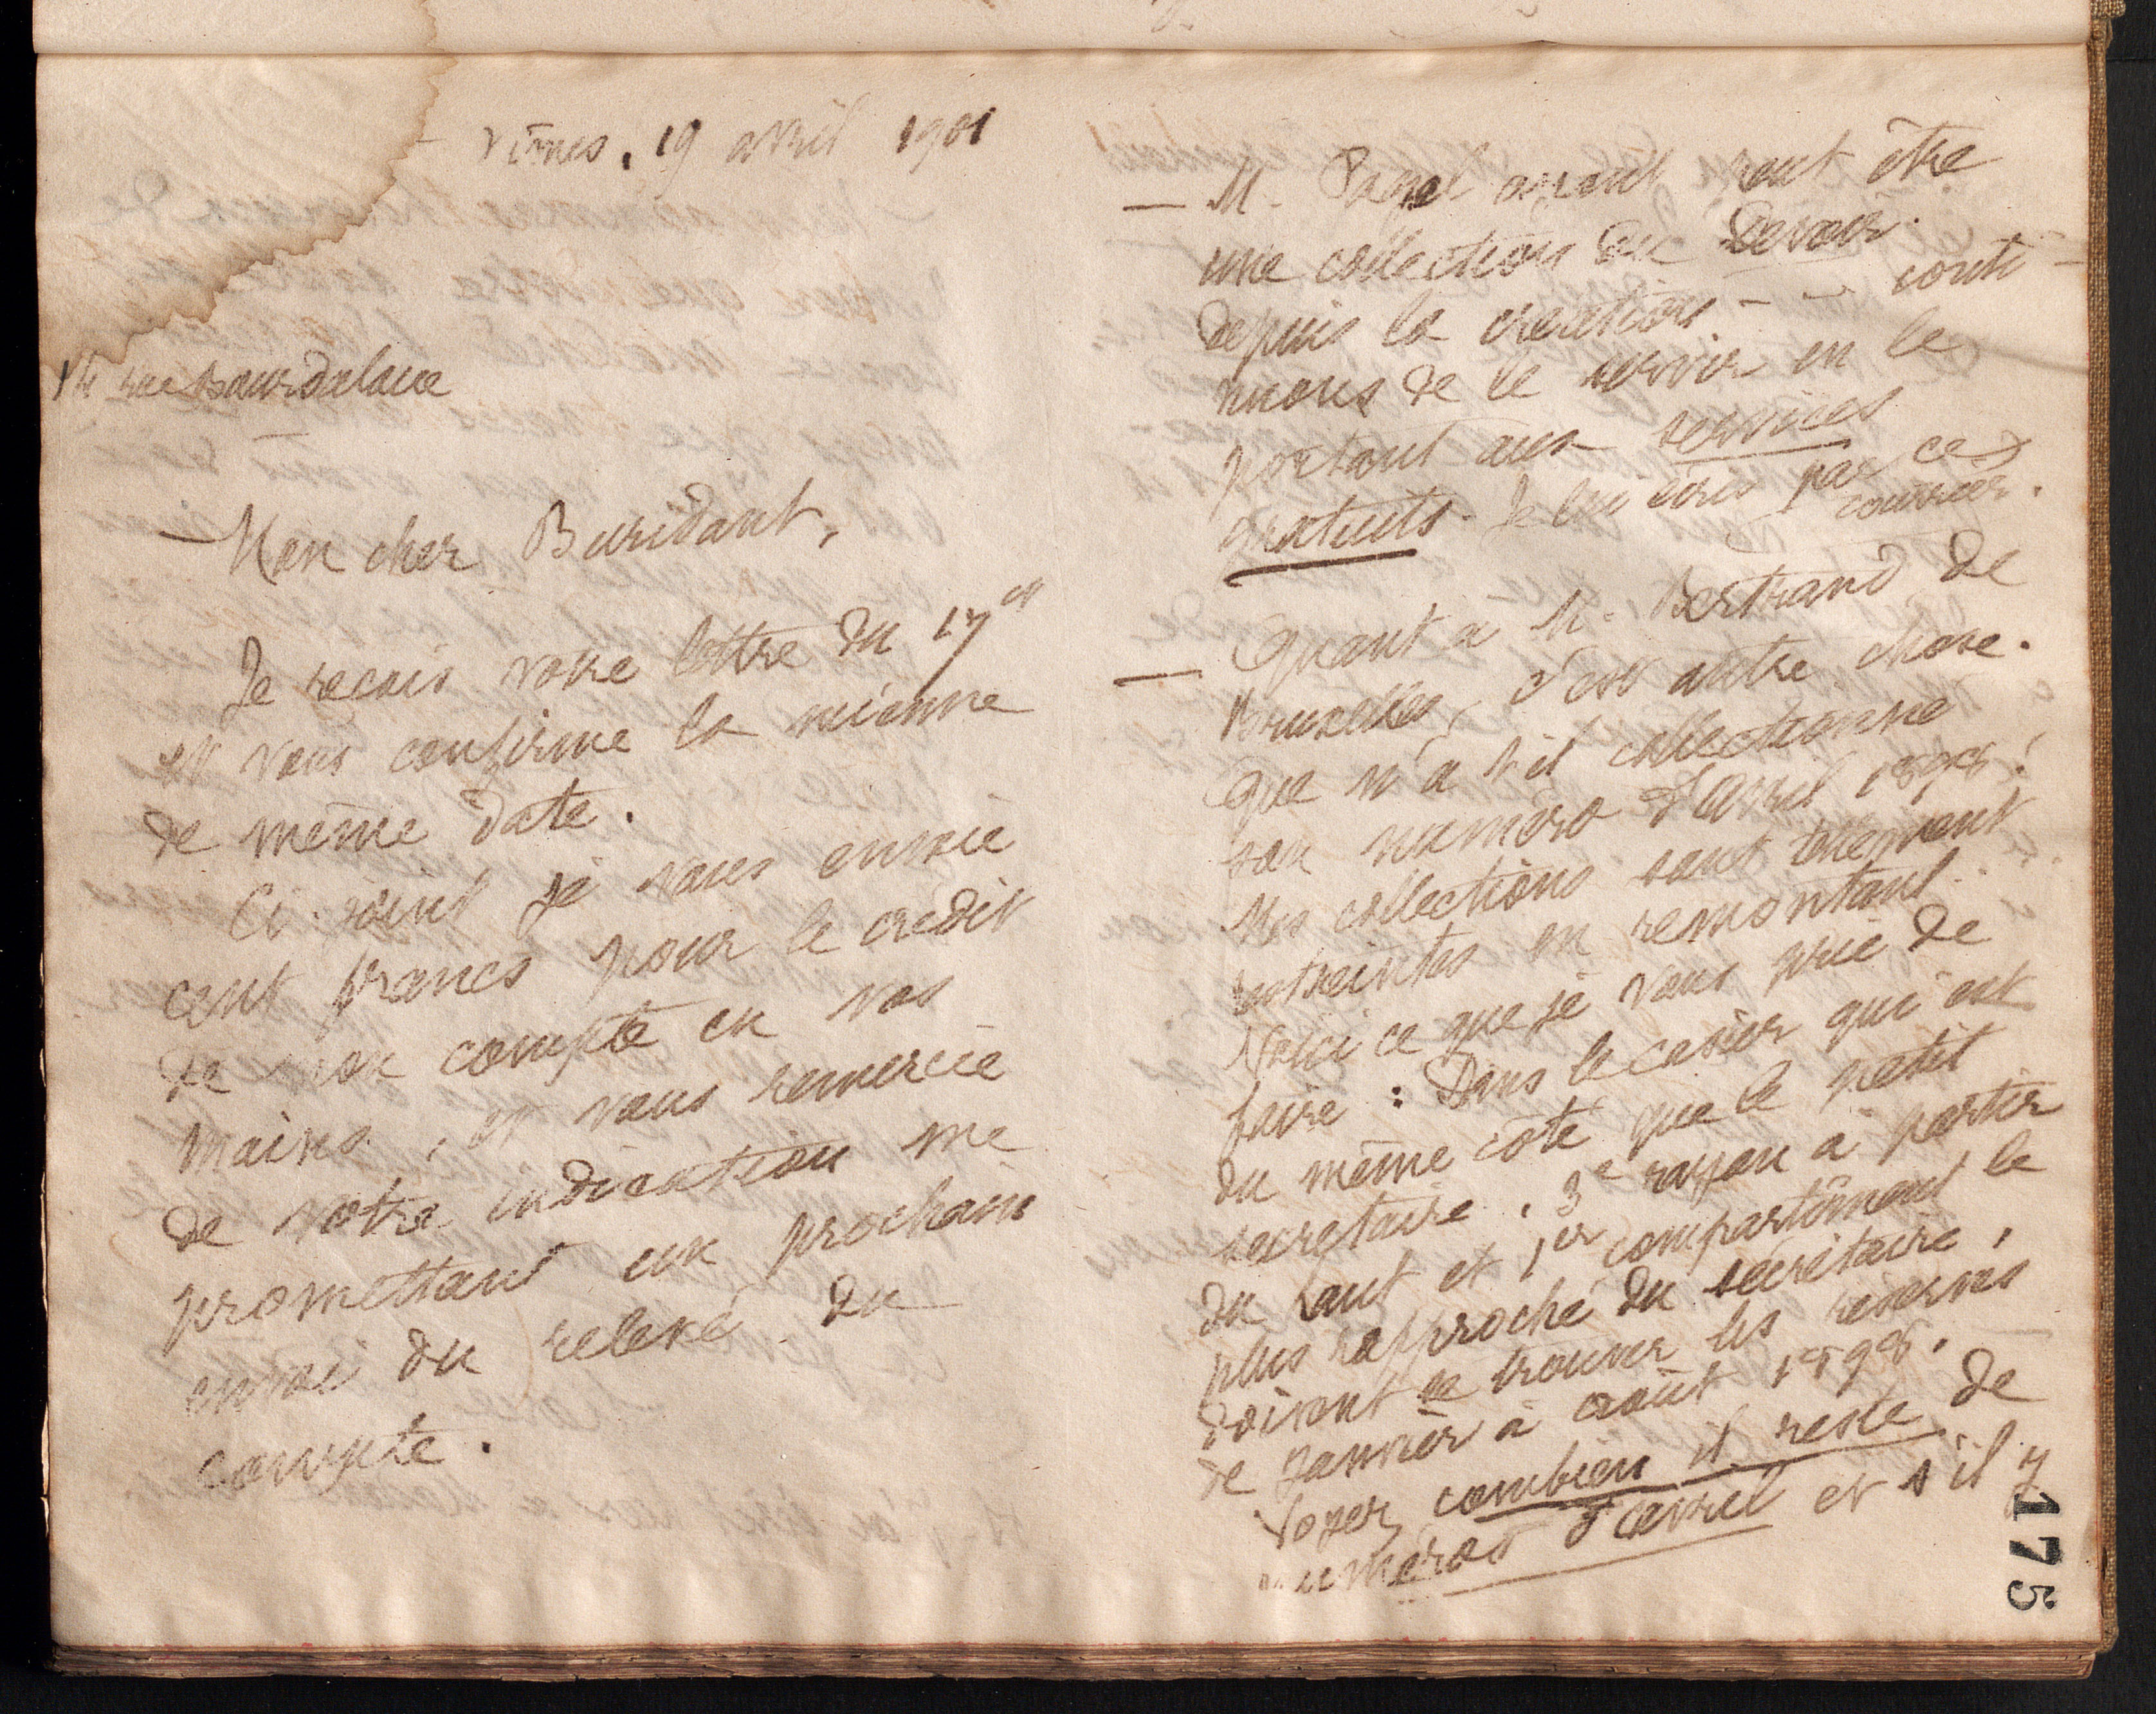 Nîmes, 19 avril 1901
14 rue Bourdaloue
Mon cher Buridant,
Je reçois votre lettre du 17 ct
et vous confirme la mienne
de même date.
Ci-joint je vous envoie
cent francs pour le crédit
de mon compte en vos
mains, et vous remercie
de votre indication me
promettant un prochain
envoi du relevé du
compte.
— M. Pagel ayant peut être
une collection du Devoir
depuis la création - - conti-
nuons de le servir en le
portant aux services
gratuits. Je lui écris par ce
courrier.
— Quant à M. Bertrand de
Bruxelles, c'est autre chose.
Que n'a t'il collectionné
son numéro d'avril 1898!
Nos collections sont tellement
restreintes en remontant.
Voici ce que je vous prie de
faire : Dans le casier qui est
du même côté que le petit
secrétaire, 3e rayon à partir
du haut et 1er compartiment le
plus rapproché du secrétaire,
doivent se trouver les réserves
de Janvier à août 1898.
Voyez combien il reste de
numéros d'avril et s'il y
175